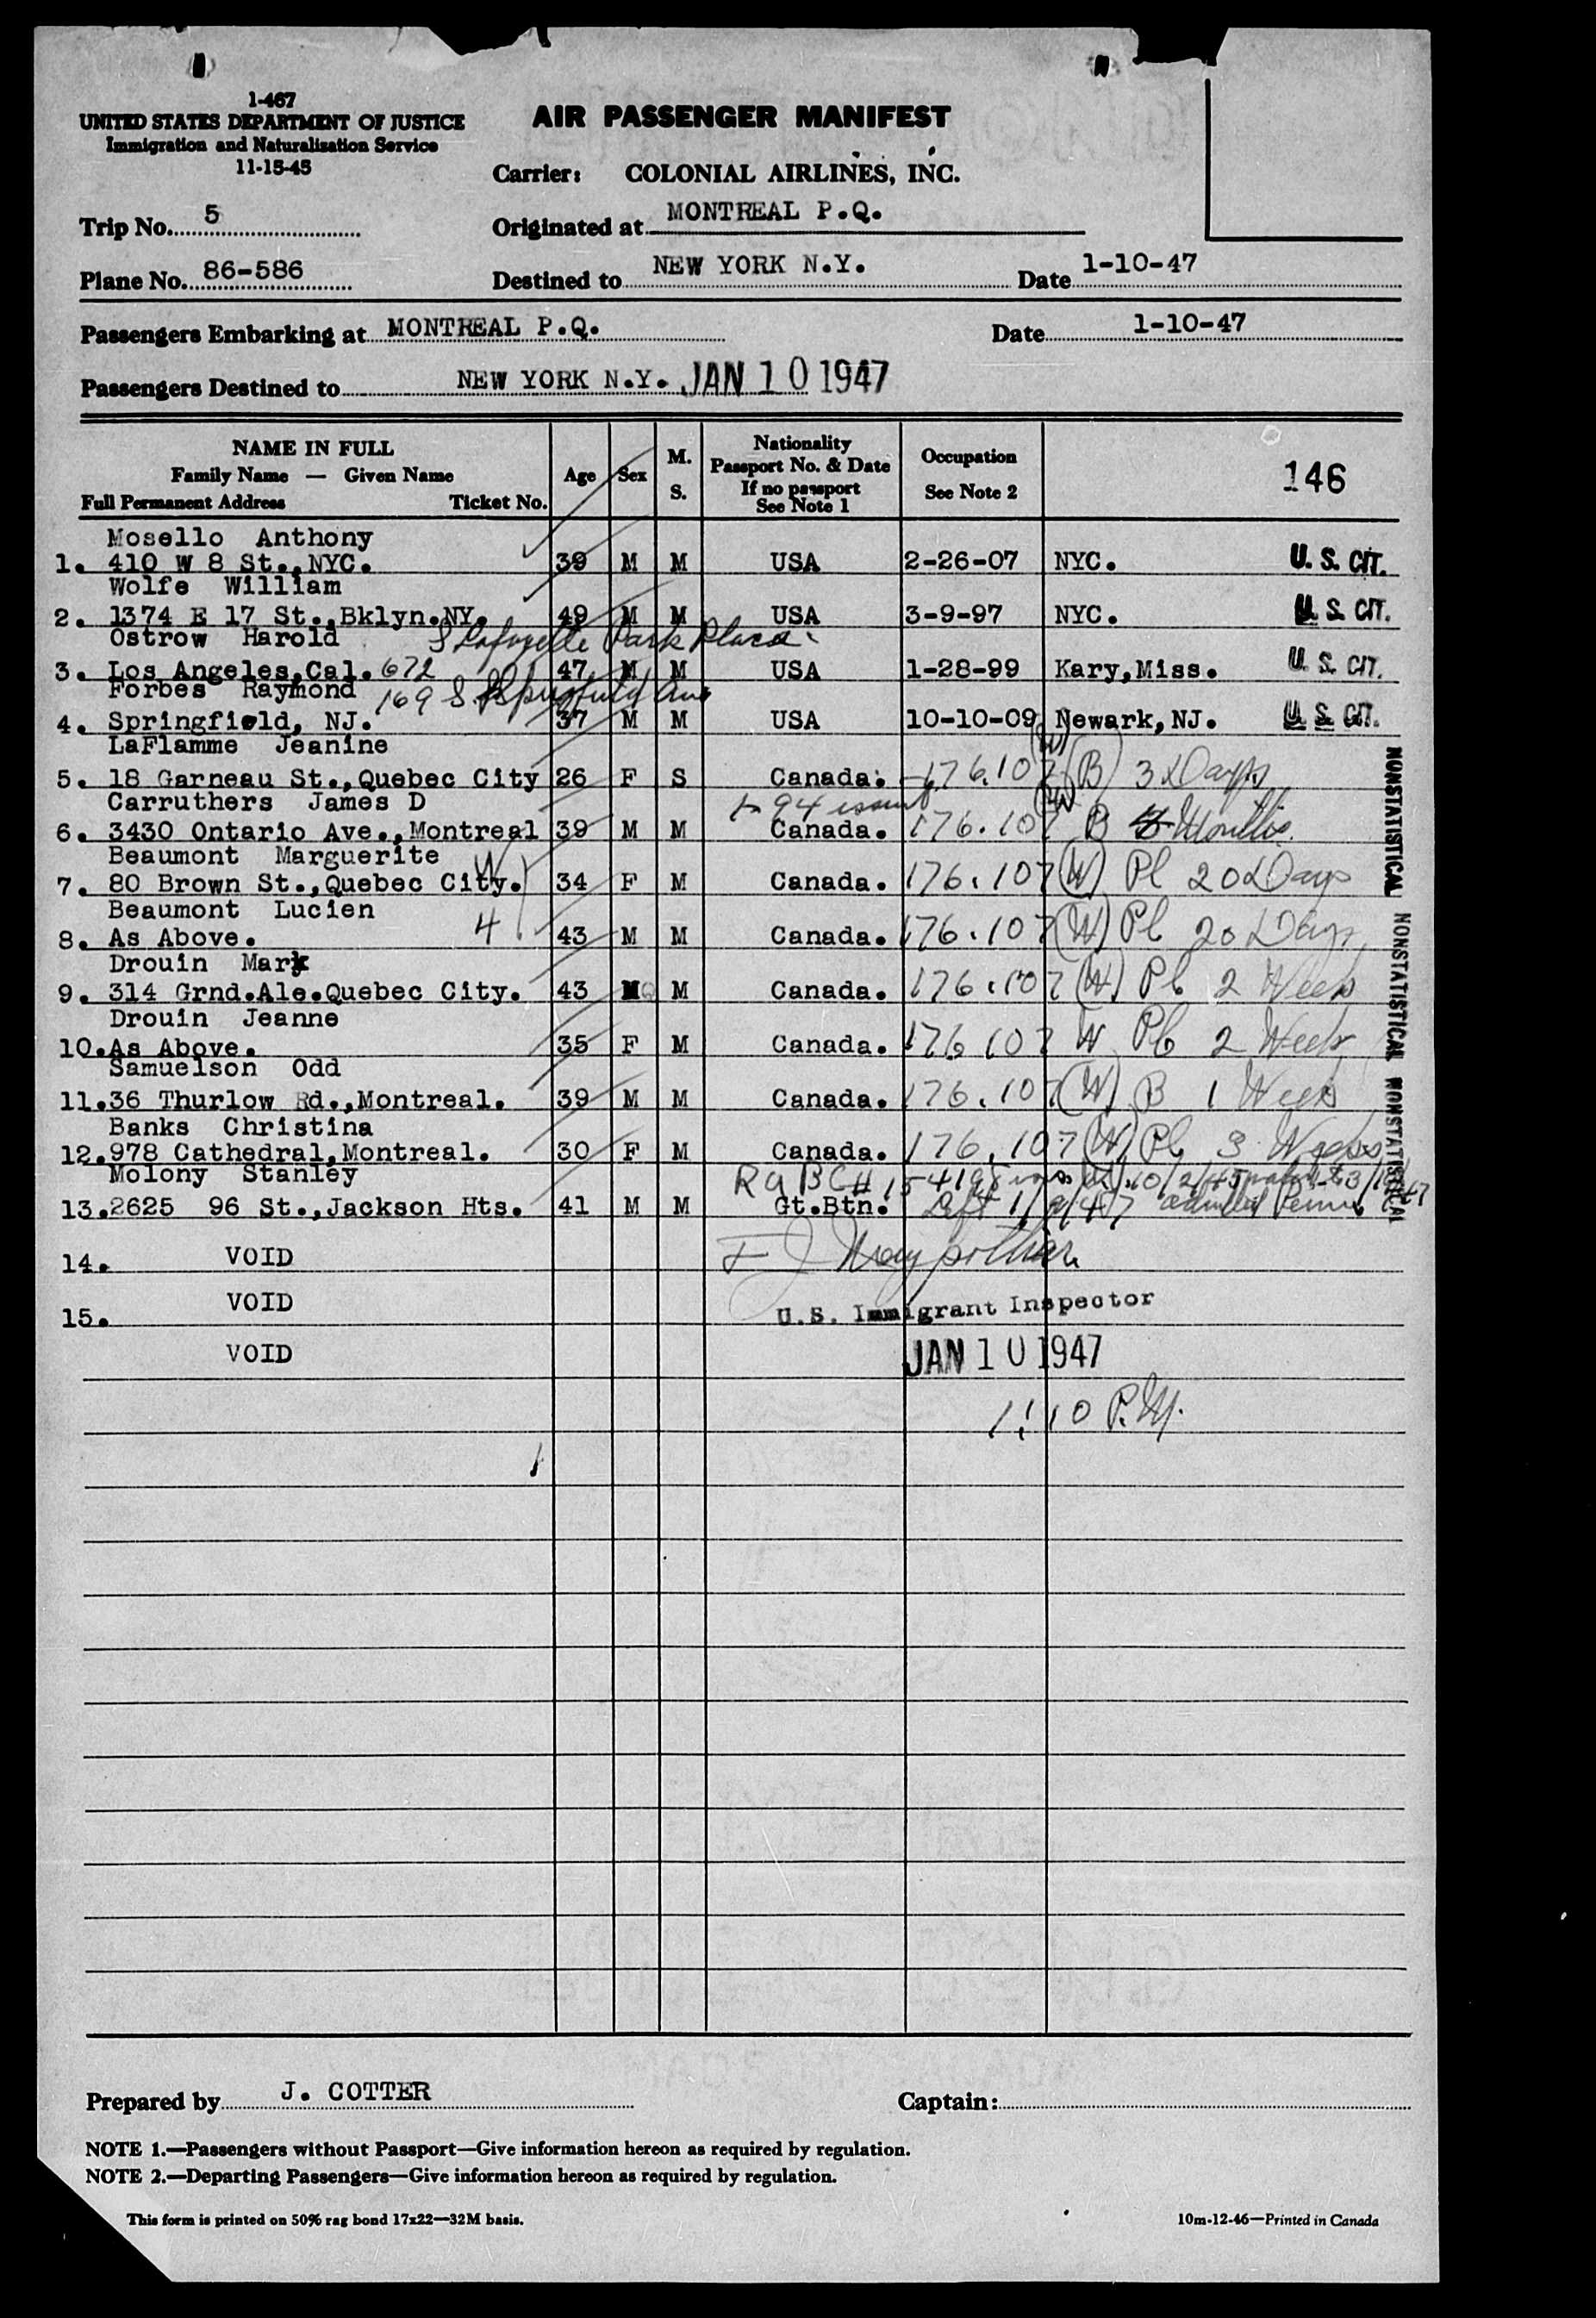 1-467
UNITED STATES DEPARTMENT OF JUSTICE
Immigration and Naturalization Service
11-15-45
AIR PASSENGER MANIFEST
Carrier: COLONIAL AIRLINES, INC.
Trip No. 5
Originated at MONTREAL P.Q.
Plane No. 86-586
Destined to NEW YORK N.Y. Date 1-10-47
Passengers Embarking at MONTREAL P.Q. Date 1-10-47
Passengers Destined to NEW YORK N.Y. JAN 10 1947
NAME IN FULL
Family Name — Given Name
Full Permanent Address Ticket No.
Age
Sex
M. S.
Nationality
Passport No. & Date
If no passport
See Note 1
Occupation
See Note 2
146
Mosello Anthony
1. 410 W 8 St., NYC. 39 M M USA 2-26-07 NYC. U. S. CIT.
Wolfe William
2. 1374 E 17 St., Bklyn.NY. 49 M M USA 3-9-97 NYC. U. S. CIT.
Ostrow Harold S Lafayette Park Place
3. Los Angeles,Cal. 672 47 M M USA 1-28-99 Kary,Miss. U. S. CIT.
Forbes Raymond 169 S. Springfield Ave
4. Springfield, NJ. 37 M M USA 10-10-09 Newark,NJ. U. S. CIT.
LaFlamme Jeanine
5. 18 Garneau St.,Quebec City 26 F S Canada. 176.107 (W) (B) 3 Days
Carruthers James D 1-94 issued
6. 3430 Ontario Ave.,Montreal 39 M M Canada. 176.107 (W) B Months
Beaumont Marguerite W
7. 80 Brown St.,Quebec City. 34 F M Canada. 176.107 (W) Pl 20 Days
Beaumont Lucien
8. As Above. 4 43 M M Canada. 176.107 (W) Pl 20 Days
Drouin Mark
9. 314 Grnd.Ale.Quebec City. 43 M M Canada. 176.107 (W) Pl 2 Weeks
Drouin Jeanne
10. As Above. 35 F M Canada. 176.107 W Pl 2 Weeks
Samuelson Odd
11. 36 Thurlow Rd.,Montreal. 39 M M Canada. 176.107 (W) B 1 Week
Banks Christina
12. 978 Cathedral,Montreal. 30 F M Canada. 176.107 (W) Pl 3 Weeks
Molony Stanley
13. 2625 96 St.,Jackson Hts. 41 M M Gt.Btn. Left 1/9/47 admitted
NONSTATISTICAL
NONSTATISTICAL
NONSTATISTICAL
14. VOID
15. VOID
U.S. Immigrant Inspector
VOID
JAN 10 1947
1:10 P.M.
Prepared by J. COTTER Captain:
NOTE 1.—Passengers without Passport—Give information hereon as required by regulation.
NOTE 2.—Departing Passengers—Give information hereon as required by regulation.
This form is printed on 50% rag bond 17x22—32M basis.
10m-12-46—Printed in Canada